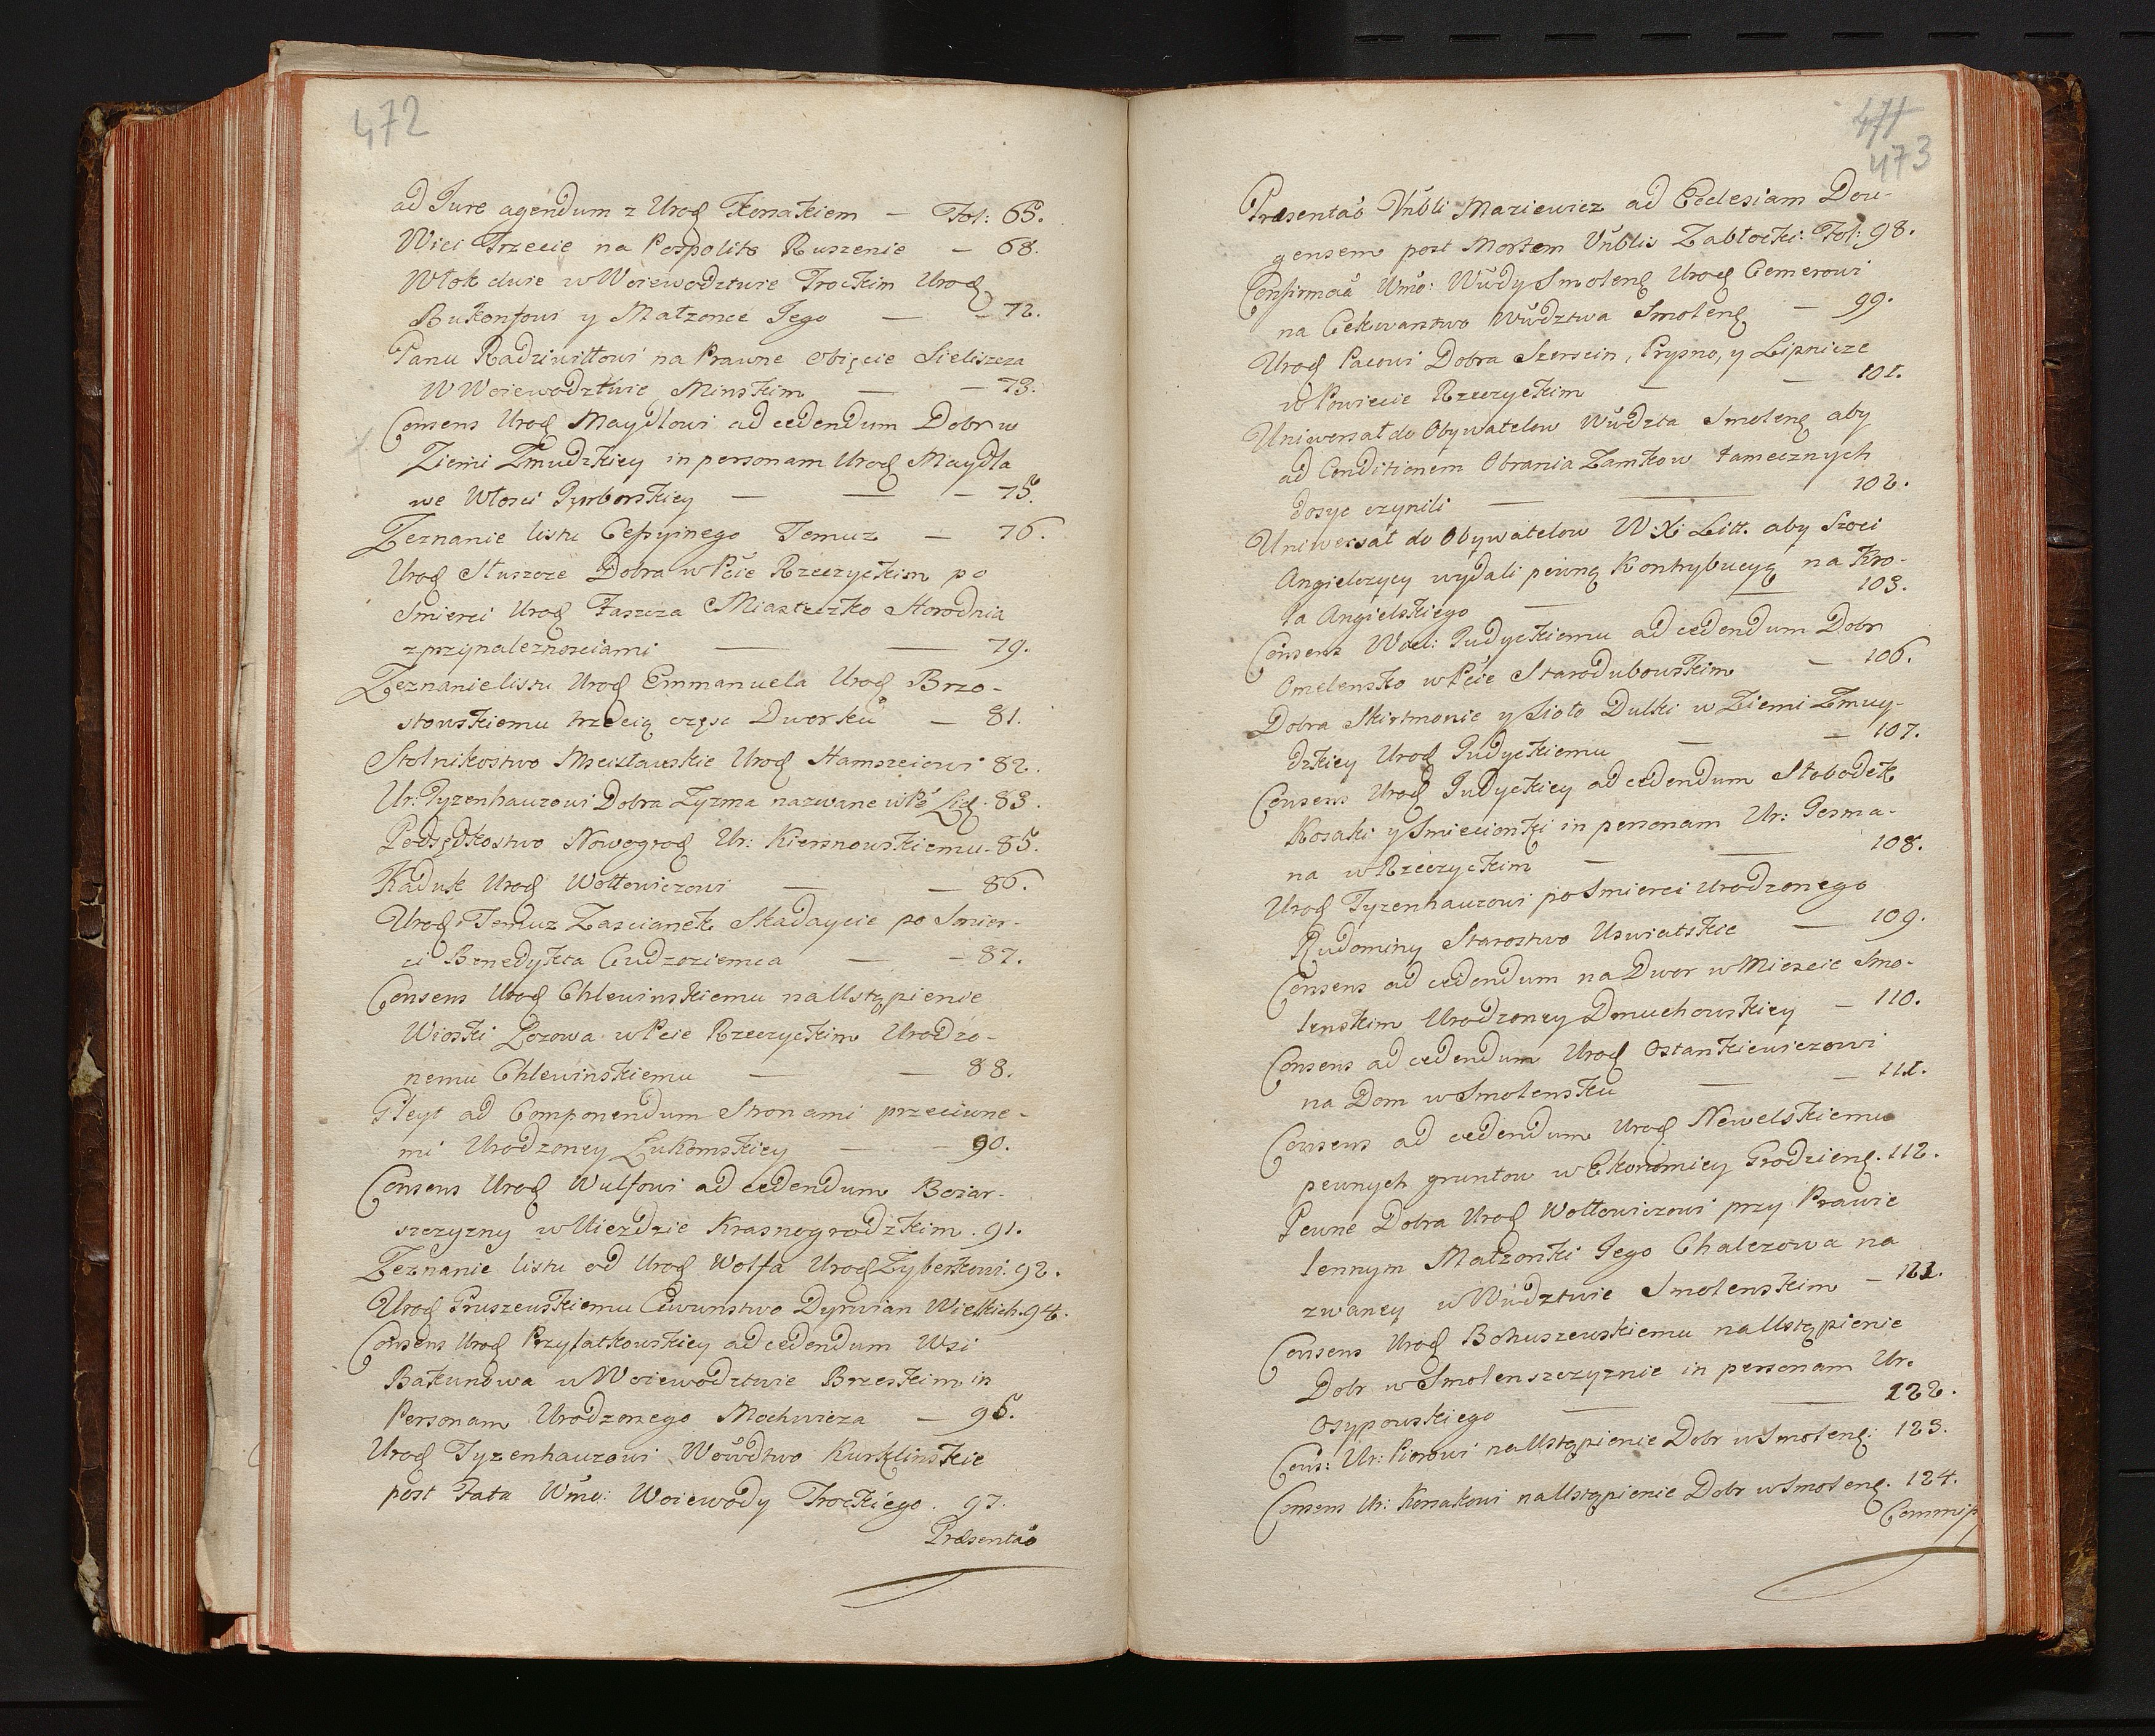 472
ad Jure agendum z Urod Konakiem — Fol: 65.
Wici Trzecie na Pospolite Ruszenie — 68.
Włok dwie w Woiewodztwie Trockim Urod
Bukonfowi y Małzonce Jego — — 72.
Panu Radziwiłłowi na Prawne obięcie Sieliszcza
W Woiewodztwie Minskim — — 73.
Consens Urod Maydlowi ad cedendum Dobr w
Ziemi Zmudzkiey in personam Urod Maydla
we Włosci Gurborskiey — — — 75.
Zeznanie listu Cessyinego Temuz — 76.
Urod Słuszcze Dobra w Pcie Rzeczyckim po
Smierci Urod Łaszcza Miasteczko Horodnia
z przynaleznosciami — — 79.
Zeznanie listu Urod Emmanuela Urod Brzo-
stowskiemu trzecią częsc Dworku — 81.
Stolnikostwo Mscisławskie Urod Hamszeiowi 82.
Ur: Tyzenhauzowi Dobra Zyzma nazwane w Po Lid. 83.
Podsędkostwo Nowogrod Ur: Kiersnowskiemu. 85.
Kaduk Urod Wołłowiczowi — — 86.
Urod Temuz Zascianek Skadaycie po Smier-
ci Benedykta Cudzoziemca — — 87.
Consens Urod Chlewinskiemu na Ustąpienie
Wioski Łozowa w Pcie Rzeczyckim Urodzo-
nemu Chlewinskiemu — — 88.
Gleyt ad Componendum Stronami przeciwne-
mi Urodzoney Łukomskiey — — 90.
Consens Urod Wulfowi ad cedendum Boiar-
szczyzny w Uiezdzie Krasnogrodzkim. 91.
Zeznanie listu od Urod Wolfa Urod Zyberkowi. 92.
Urod Gruszewskiemu Ciwunstwo Dyrwian Wielkich. 94.
Consens Urod Przylatkowskiey ad cedendum Wsi
Bakunowa w Woiewodztwie Brzeskim in
Personam Urodzonego Mochwicza — 95.
Urod Tyzenhauzowi Wowdtwo Kurklinskie
post Fata Wmo: Woiewody Trockiego. 97.
Præsentao
471
473
Præsentao Vnbli Maziewicz ad Ecclesiam Dou-
gensem post Mortem Vnblis Zabłocki: Fol: 98.
Confirmaa Wmo: Wwdy Smolens Urod Cemerowi
na Ciekwanstwo Wwdztwa Smolens — 99.
Urod Pacowi Dobra Szerscin, Prypno, y Lipnicze
w Powiecie Rzeczyckim — — 101.
Uniwersał do Obywatelow Wwdzta Smolens aby
ad Conditionem Obrania Zamkow tamecznych
dosyc czynili — — 102.
Uniwersał do Obywatelow W. X: Litt. aby Szoci
Angielczycy wydali pewną Kontrybucyą na Kro-
la Angielskiego — — 103.
Consens Woel: Judyckiemu ad cedendum Dobr
Omelensko w Pcie Starodubowskim — 106.
Dobra Skirsmonie y Sioło Dulki w Ziemi Zmuy-
dzkiey Urod Judyckiemu — — 107.
Consens Urod Judyckiey ad cedendum Słobodek
Kosaki y Smiecionki in personam Ur: Jesma-
na w Rzeczyckim — — 108.
Urod Tyzenhauzowi po Smierci Urodzonego
Rudominy Starostwo Uswiatskie — 109.
Consens ad cedendum na Dwor w Miescie Smo-
lenskim Urodzoney Dmuchowskiey — 110.
Consens ad cedendum Urod Ostankiewiczowi
na Dom w Smolensku — — 111.
Consens ad cedendum Urod Newelskiemu
pewnych gruntow w Ekonomiey Grodziens. 112.
Pewne Dobra Urod Wołłowiczowi przy Prawie
lennym Małzonki Jego Chalezowa na
zwaney w Wwdztwie Smolenskim — 121.
Consens Urod Bohuszewskiemu na Ustąpienie
Dobr w Smolenszczyznie in personam Ur.
Osypowskiego — — 122.
Cons: Ur: Piorowi na Ustąpienie Dobr w Smolens: 123.
Consens Ur: Konakowi na Ustąpienie Dobr w Smolens. 124.
Commiss